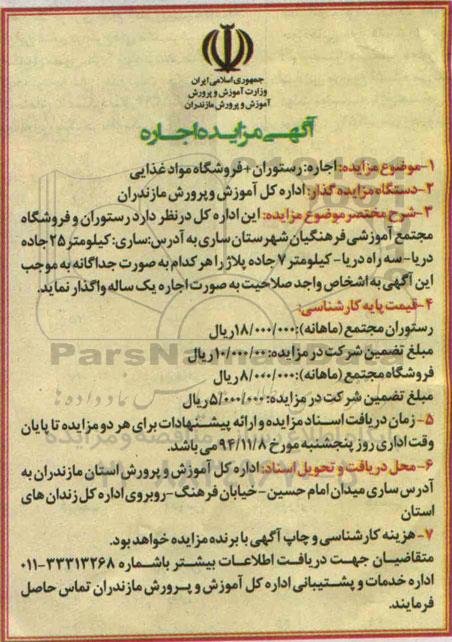 جمهوری اسلامی ایران
وزارت آموزش و پرورش
آموزش و پرورش مازندران
آگهی مزایده اجاره
۱-موضوع مزایده: اجاره: رستوران+فروشگاه مواد غذایی
۲-دستگاه مزایده گذار: اداره کل آموزش و پرورش مازندران
۳-شرح مختصر موضوع مزایده: این اداره کل در نظر دارد رستوران و فروشگاه
مجتمع آموزشی فرهنگیان شهرستان ساری به آدرس: ساری: کیلومتر ۲۵ جاده
دریا- سه راه دریا- کیلومتر ۷ جاده پلاژ را هر کدام به صورت جداگانه به موجب
این آگهی به اشخاص واجد صلاحیت به صورت اجاره یک ساله واگذار نماید.
۴-قیمت پایه کارشناسی:
رستوران مجتمع (ماهانه): ۱۸/۰۰۰/۰۰۰ریال
مبلغ تضمین شرکت در مزایده: ۱۰/۰۰۰/۰۰۰ریال
فروشگاه مجتمع (ماهانه): ۸/۰۰۰/۰۰۰ریال
مبلغ تضمین شرکت در مزایده: ۵/۰۰۰/۰۰۰ریال
۵- زمان دریافت اسناد مزایده و ارائه پیشنهادات برای هر دو مزایده تا پایان
وقت اداری روز پنجشنبه مورخ ۹۴/۱۱/۸ می باشد.
۶- محل دریافت و تحویل اسناد: اداره کل آموزش و پرورش استان مازندران به
آدرس ساری میدان امام حسین- خیابان فرهنگ- روبروی اداره کل زندان های
استان
۷- هزینه کارشناسی و چاپ آگهی با برنده مزایده خواهد بود.
متقاضیان جهت دریافت اطلاعات بیشتر با شماره ۳۳۳۱۳۲۶۸-۰۱۱
اداره خدمات و پشتیبانی اداره کل آموزش و پرورش مازندران تماس حاصل
فرمایند.
ParsNamadData